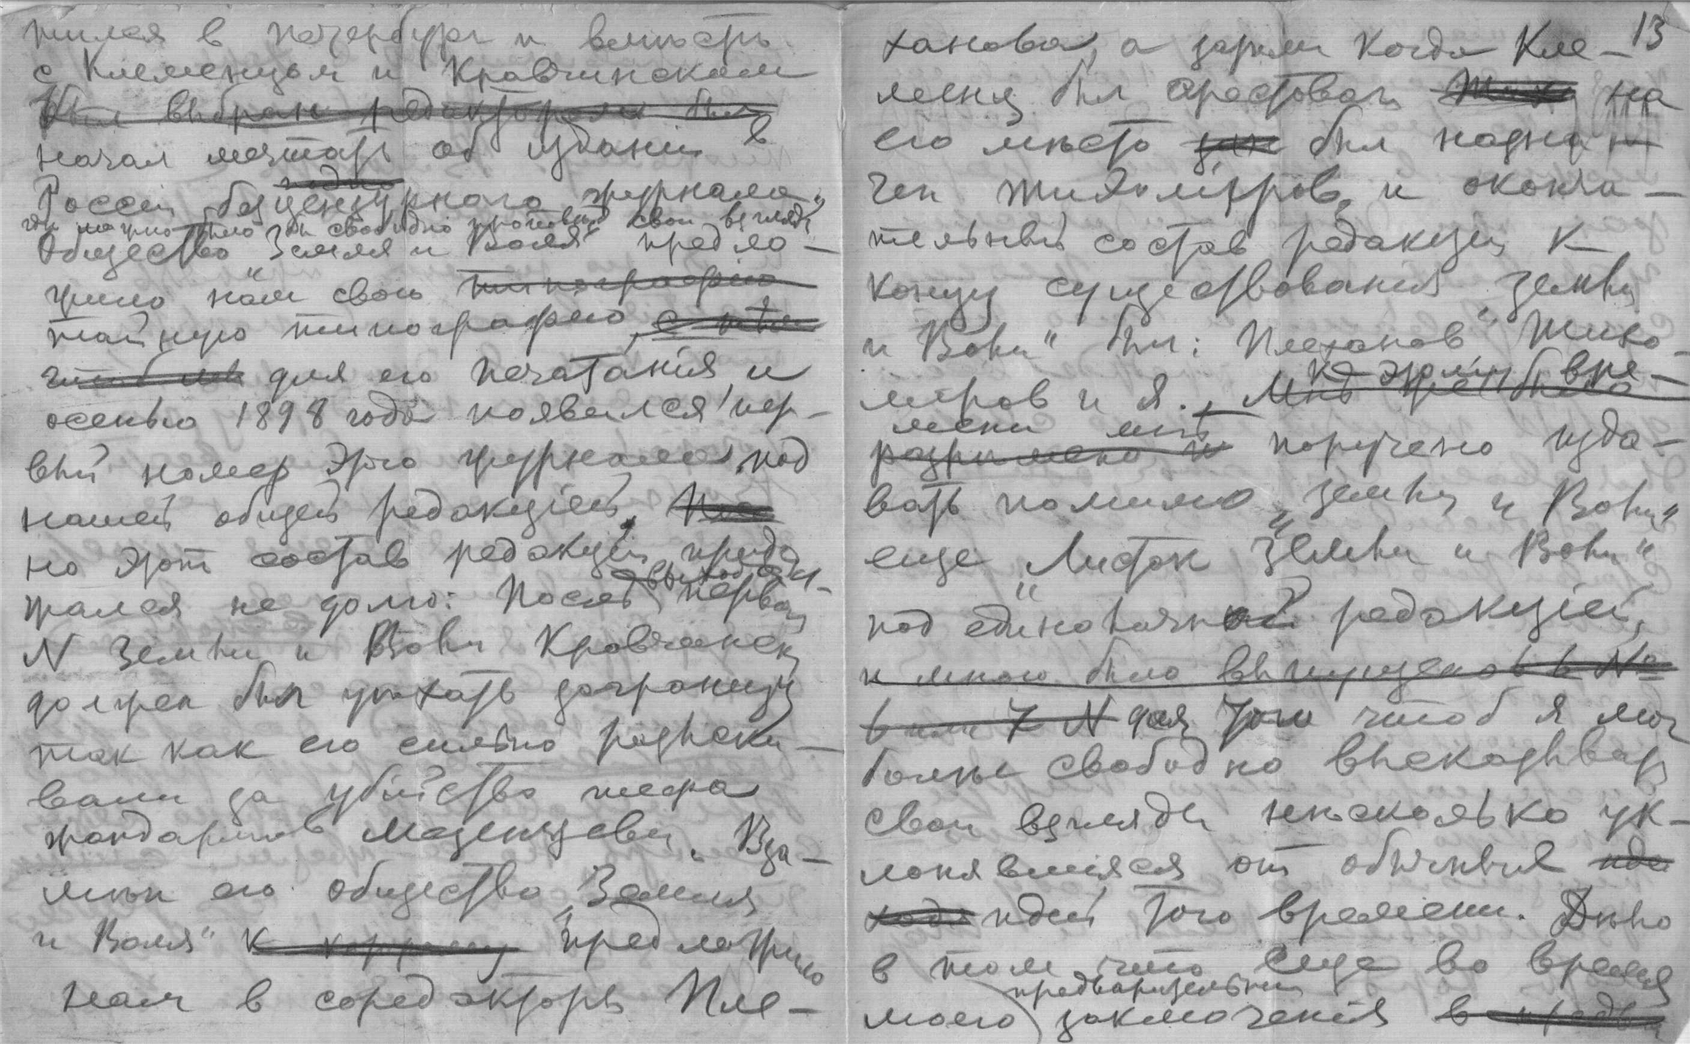 жился в Петербурге и вместе
с Клеменцом и Кравчинским
был выбран редактором был
начал мечтать об издании в
России безцензурного журнала,
где можно было бы свободно проповед свои взгляды
Общество „Земля и Воля" предло-
жило нам свою типографию
тайную типографию,
для его печатания, и
осенью 1898 года появился пер-
вый номер этого журнала под
нашей общей редакцией.
но этот состав редакціи продол-
жался не долго: После выхода перваго
N Земли и Воли Кравчинскій
должен был уехать заграницу
так как его сильно разыски-
вали за убійство шефа
жандармов Мезенцева. Вза-
мѣн его общество „Земля
и Воля" предложило
нам в соредакторы Пле-
13
ханова, а затем когда Кле-
менц был арестован Тихо на
его мѣсто был назна-
чен Тихоміров, и оконча-
тельный состав редакціи к
концу существованія „Земли
и Воли" был: Плеханов Тихо-
міров и я. Мнѣ
к этому вре-
мени мнѣ
разрѣшено и поручено изда-
вать помимо „Земли и Воли"
еще „Листок Земли и Воли"
под единоличной редакціей,
и мною было выпущено 6 N
6 или 7 N для того чтоб я мог
болѣе свободно высказывать
свои взгляды нѣсколько ук-
лонявшіяся от обычных
идей того времени. Дѣло
в том что еще во время
предварительнаго
моего заключенія в предва